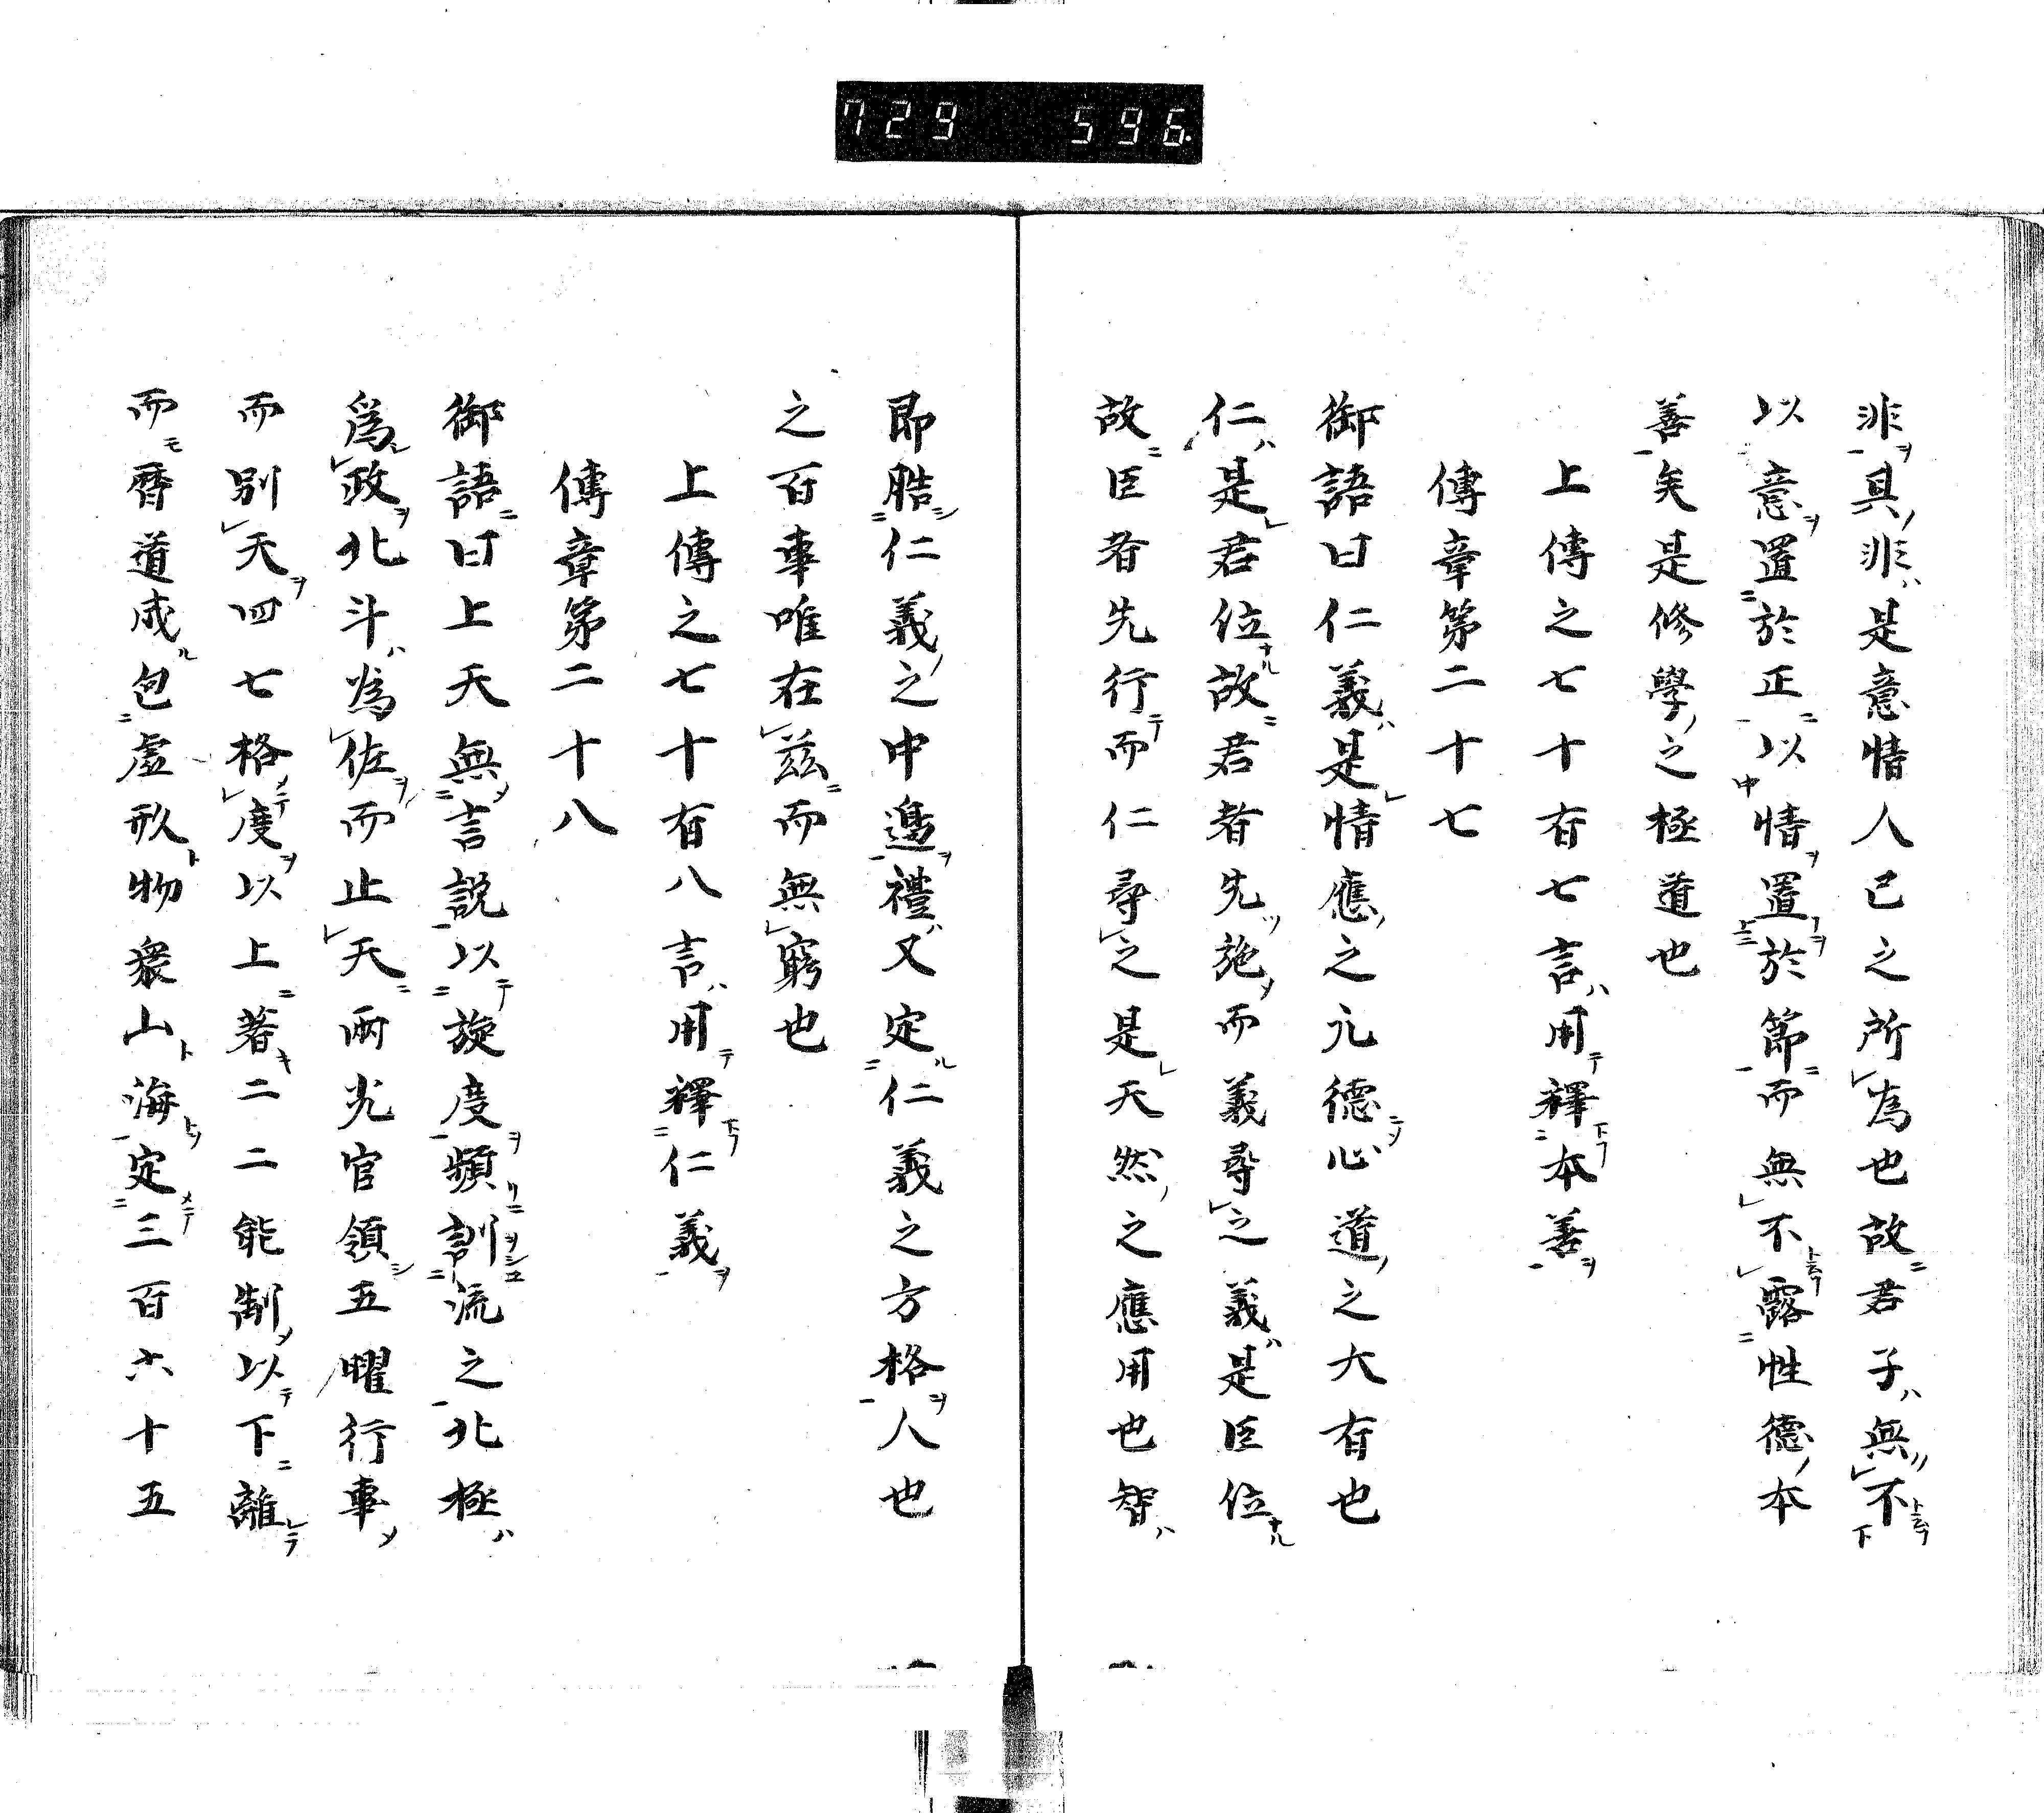 729 596
非具非是意情人已之所為也故君子無不
以意置於正以情置於節而無不露性德本
善矣是修學之極道也
上傳之七十有七言用釋本善
傳章第二十七
御語曰仁義是情應之元德心道之大有也
仁是君位故君者先施而義尋之義是臣位
故臣者先行而仁尋之是天然之應用也智
即仁義之中邊禮又定仁義之方格人也
之百事唯在茲而無窮也
上傳之七十有八言用釋仁義
傳章第二十八
御語曰上天無言説以旋度頻訓流之北極
為政北斗為佐而止天兩光官領五曜行事
而別天四七格度以上著二二能制以下離
而曆道成包虛形物衆山海定三百六十五